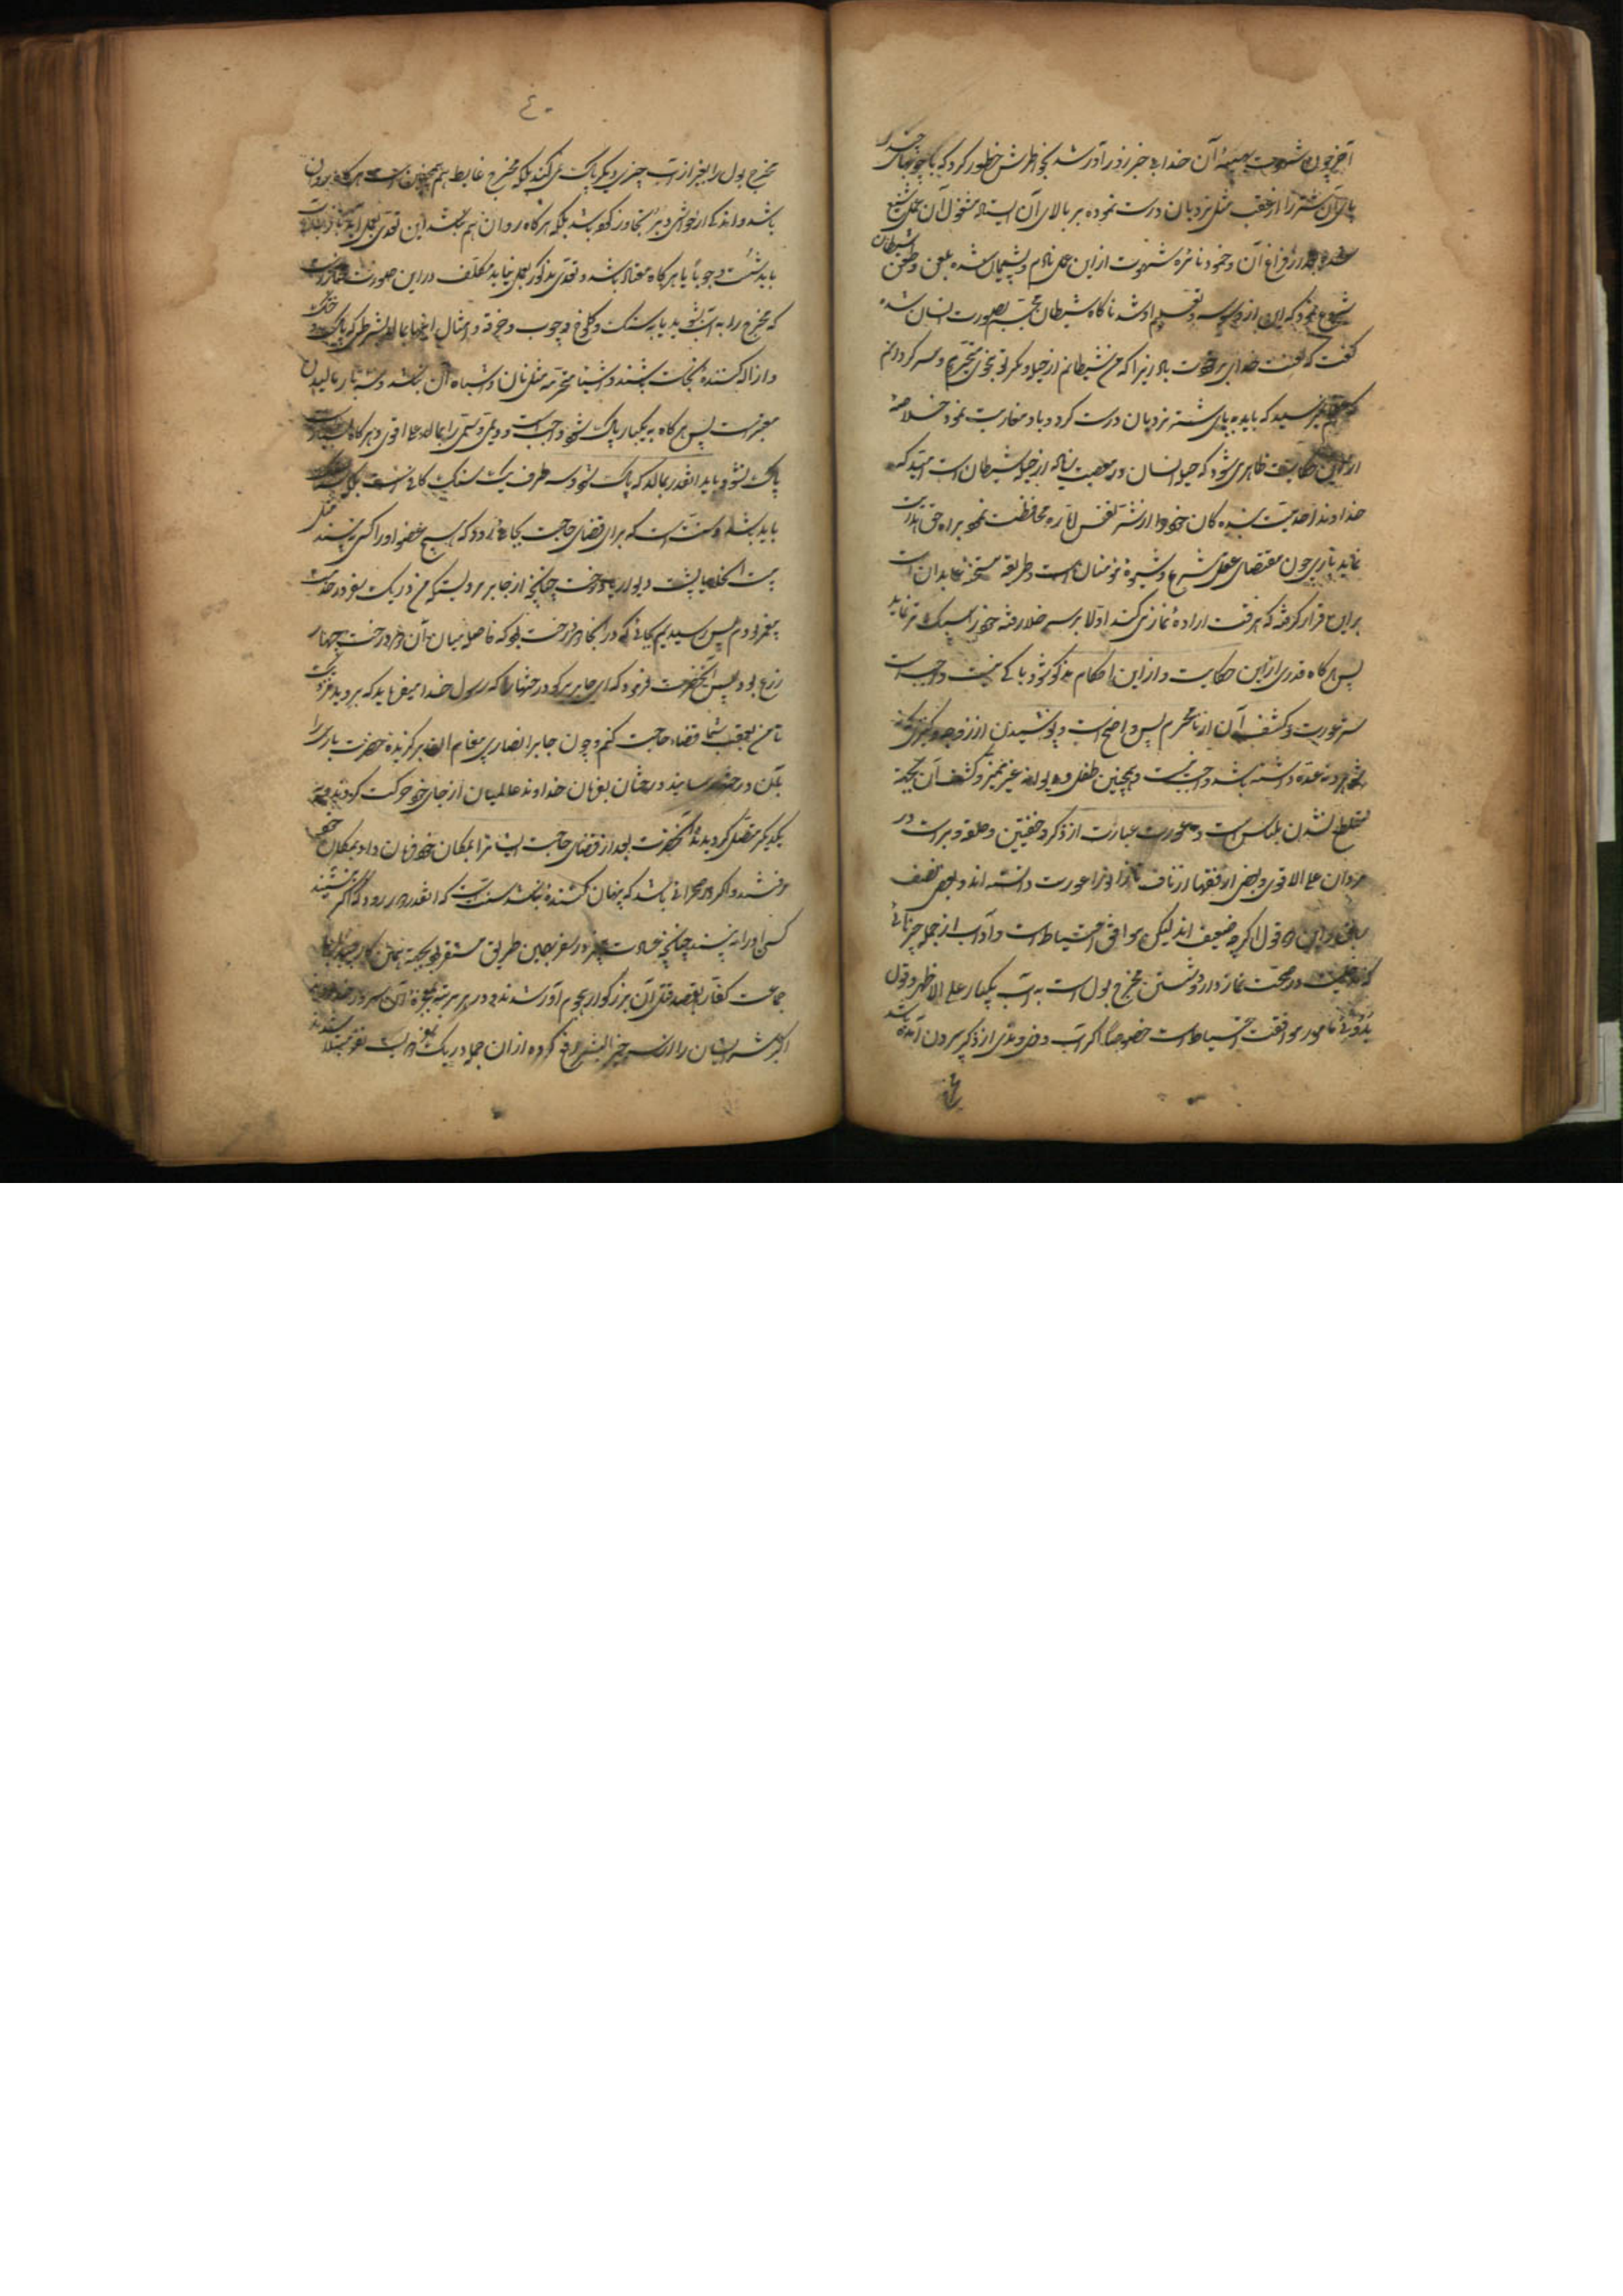 آخر چون شهوت بهیمهٔ آن خدا بی خبر زور آور شد بخاطرش خطور کرد که با چوبهای
پای آن شتر را از عقب مثل نردبان درست نموده بر بالای آن ایستاده مشغول آن عمل شنیع
شده بعد از فراغ آن و خمود نائرهٔ شهوت از این عمل نادم و پشیمان شده بلعن و طعن شیطان
شروع نمود که این از وسوسه و تعلیم او شد ناگاه شیطان مجسم بصورت انسان شده
گفت که لعنت خدای بر خودت باد زیرا که من شیطانم از حیله و مکر تو متحیرم و سر گردانم
نرسید که باید به پای شتر نردبان درست کرد و با او مقاربت نمود خلاصه
از این حکایت ظاهر می شود که حیلهٔ انسان در معصیت زیاده از حیلهٔ شیطان است امید که
خداوند احدیت بنده گان خود را از شر نفس اماره محافظت نموده براه حق هدایت
نماید باری چون مقتضای عقل و شرع و شیوهٔ مومنان است و طریقهٔ مستحسنهٔ عابدان است
بر این قرار گرفته که هر وقت ارادهٔ نماز می کند اولا بر سر خلا رفته خود را سبک تر نماید
پس هر گاه قدری از این حکایت و از این احکام مذکور شود باکی نیست و واجب است
ستر عورت و کشف آن از نامحرم پس واضح است و پوشیدن از زوجه و کنیزی که
شوهر و نه عده داشته باشد واجب نیست و همچنین طفل و دیوانهٔ غیر ممیز و کشف آن بجهة
مطلع نشدن بلباس است و عورت عبارت از ذکر و خصیتین و حلقهٔ دبر است در
مردان علی الاقوی و بعضی از فقها از ناف تا زانو را عورت دانسته اند و بعضی نصف
ساق و این دو قول اگر چه ضعیف اند لیکن موافق احتیاط است و آداب از جمله چیزهائی
که مدخلیت در صحت نماز دارد شستن مخرج بول است به آب یکبار علی الاظهر و قول
بدو موافقت احتیاط است خصوصاً اگر آب و ودی و مذی از ذکر بیرون آمده باشد
مخرج بول را بغیر از آب چیزی دیگر پاک نمی کند بلکه مخرج غایط هم همچنین است هر گاه روان
باشد و اندکی از حواشی دبر تجاوز کرده باشد بلکه هر گاه روان هم نباشد این تعدی بعمل آید باز بآب
باید شست وجوباً یا هر گاه معتاد باشد و تعدی مذکور بعمل نیاید مکلف در این صورت مختار است
که مخرج را به آب بشوید یا به سنگ و کلوخ و چوب و خرقه و امثال اینها بمالد بشرطی که پاک و خشک
و ازاله کنندهٔ نجاست باشند و اشیاء محترمه مثل نان و اشباه آن نباشد و سه بار مالیدن
معتبر است پس هر گاه به یکبار پاک شود واجب است دوم و سیم را بمالد علی اقوی و هر گاه بسه بار
پاک نشود باید آنقدر بمالد که پاک شود و سه طرف یک سنگ کافی نیست بلکه سه سنگ
باید باشد و سنت است که برای قضای حاجت بجائی رود که هیچ عضو او را کسی نبیند مثل
بیت الخلا یا پشت دیوار یا درخت چنانچه از جابر مرویست که من در یک سفر در خدمت
پیغمبر بودم پس رسیدیم بجائی که در آنجا دو درخت بود که فاصله میان آن دو درخت چهار
زرع بود پس آنحضرت فرمود که ای جابر برو بدرختها بگو که رسول خدا میفرماید که بروید
تا من بعقب شما قضاء حاجت کنم و چون جابر انصاری پیغام آن پیغمبر گزیدهٔ حضرت باری را
بآن درختها رسانید درختان بفرمان خداوند عالمیان از جای خود حرکت کرده
یکدیگر متصل گردیدند آنحضرت بعد از قضای حاجت ایشانرا بمکان خود فرمان داد بمکان خود
رفتند و اگر در صحرائی باشد که پنهان کننده نباشد سنت است که آنقدر دور رود که اگر بنشیند
کسی او را نه بیند چنانچه عادت پیغمبر در سفر بهمین طریق مستقر بود بجهة همین کار
جماعت کفار بقصد قتل آن بزرگوار هجوم آور شدند و در هر مرتبه بمعجزهٔ آن سرور
اکثر شر ایشان را از سر خیر البشر دفع کرده از آن جمله در یک